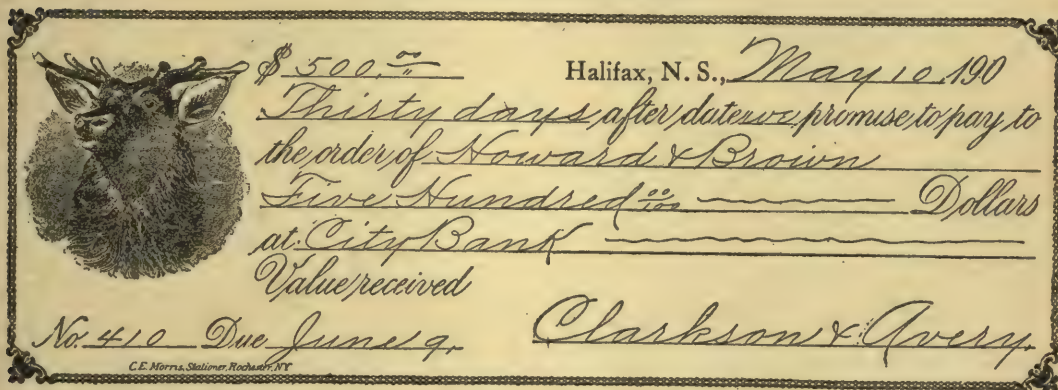 $ 500.00 Halifax, N. S., May 10 190
Thirty days after date we promise to pay to
the order of Howard & Brown
Five Hundred 00/100 Dollars
at City Bank
Value received
No. 410 Due June 9. Clarkson & Avery.
C.E. Morris, Stationer, Rochester, NY